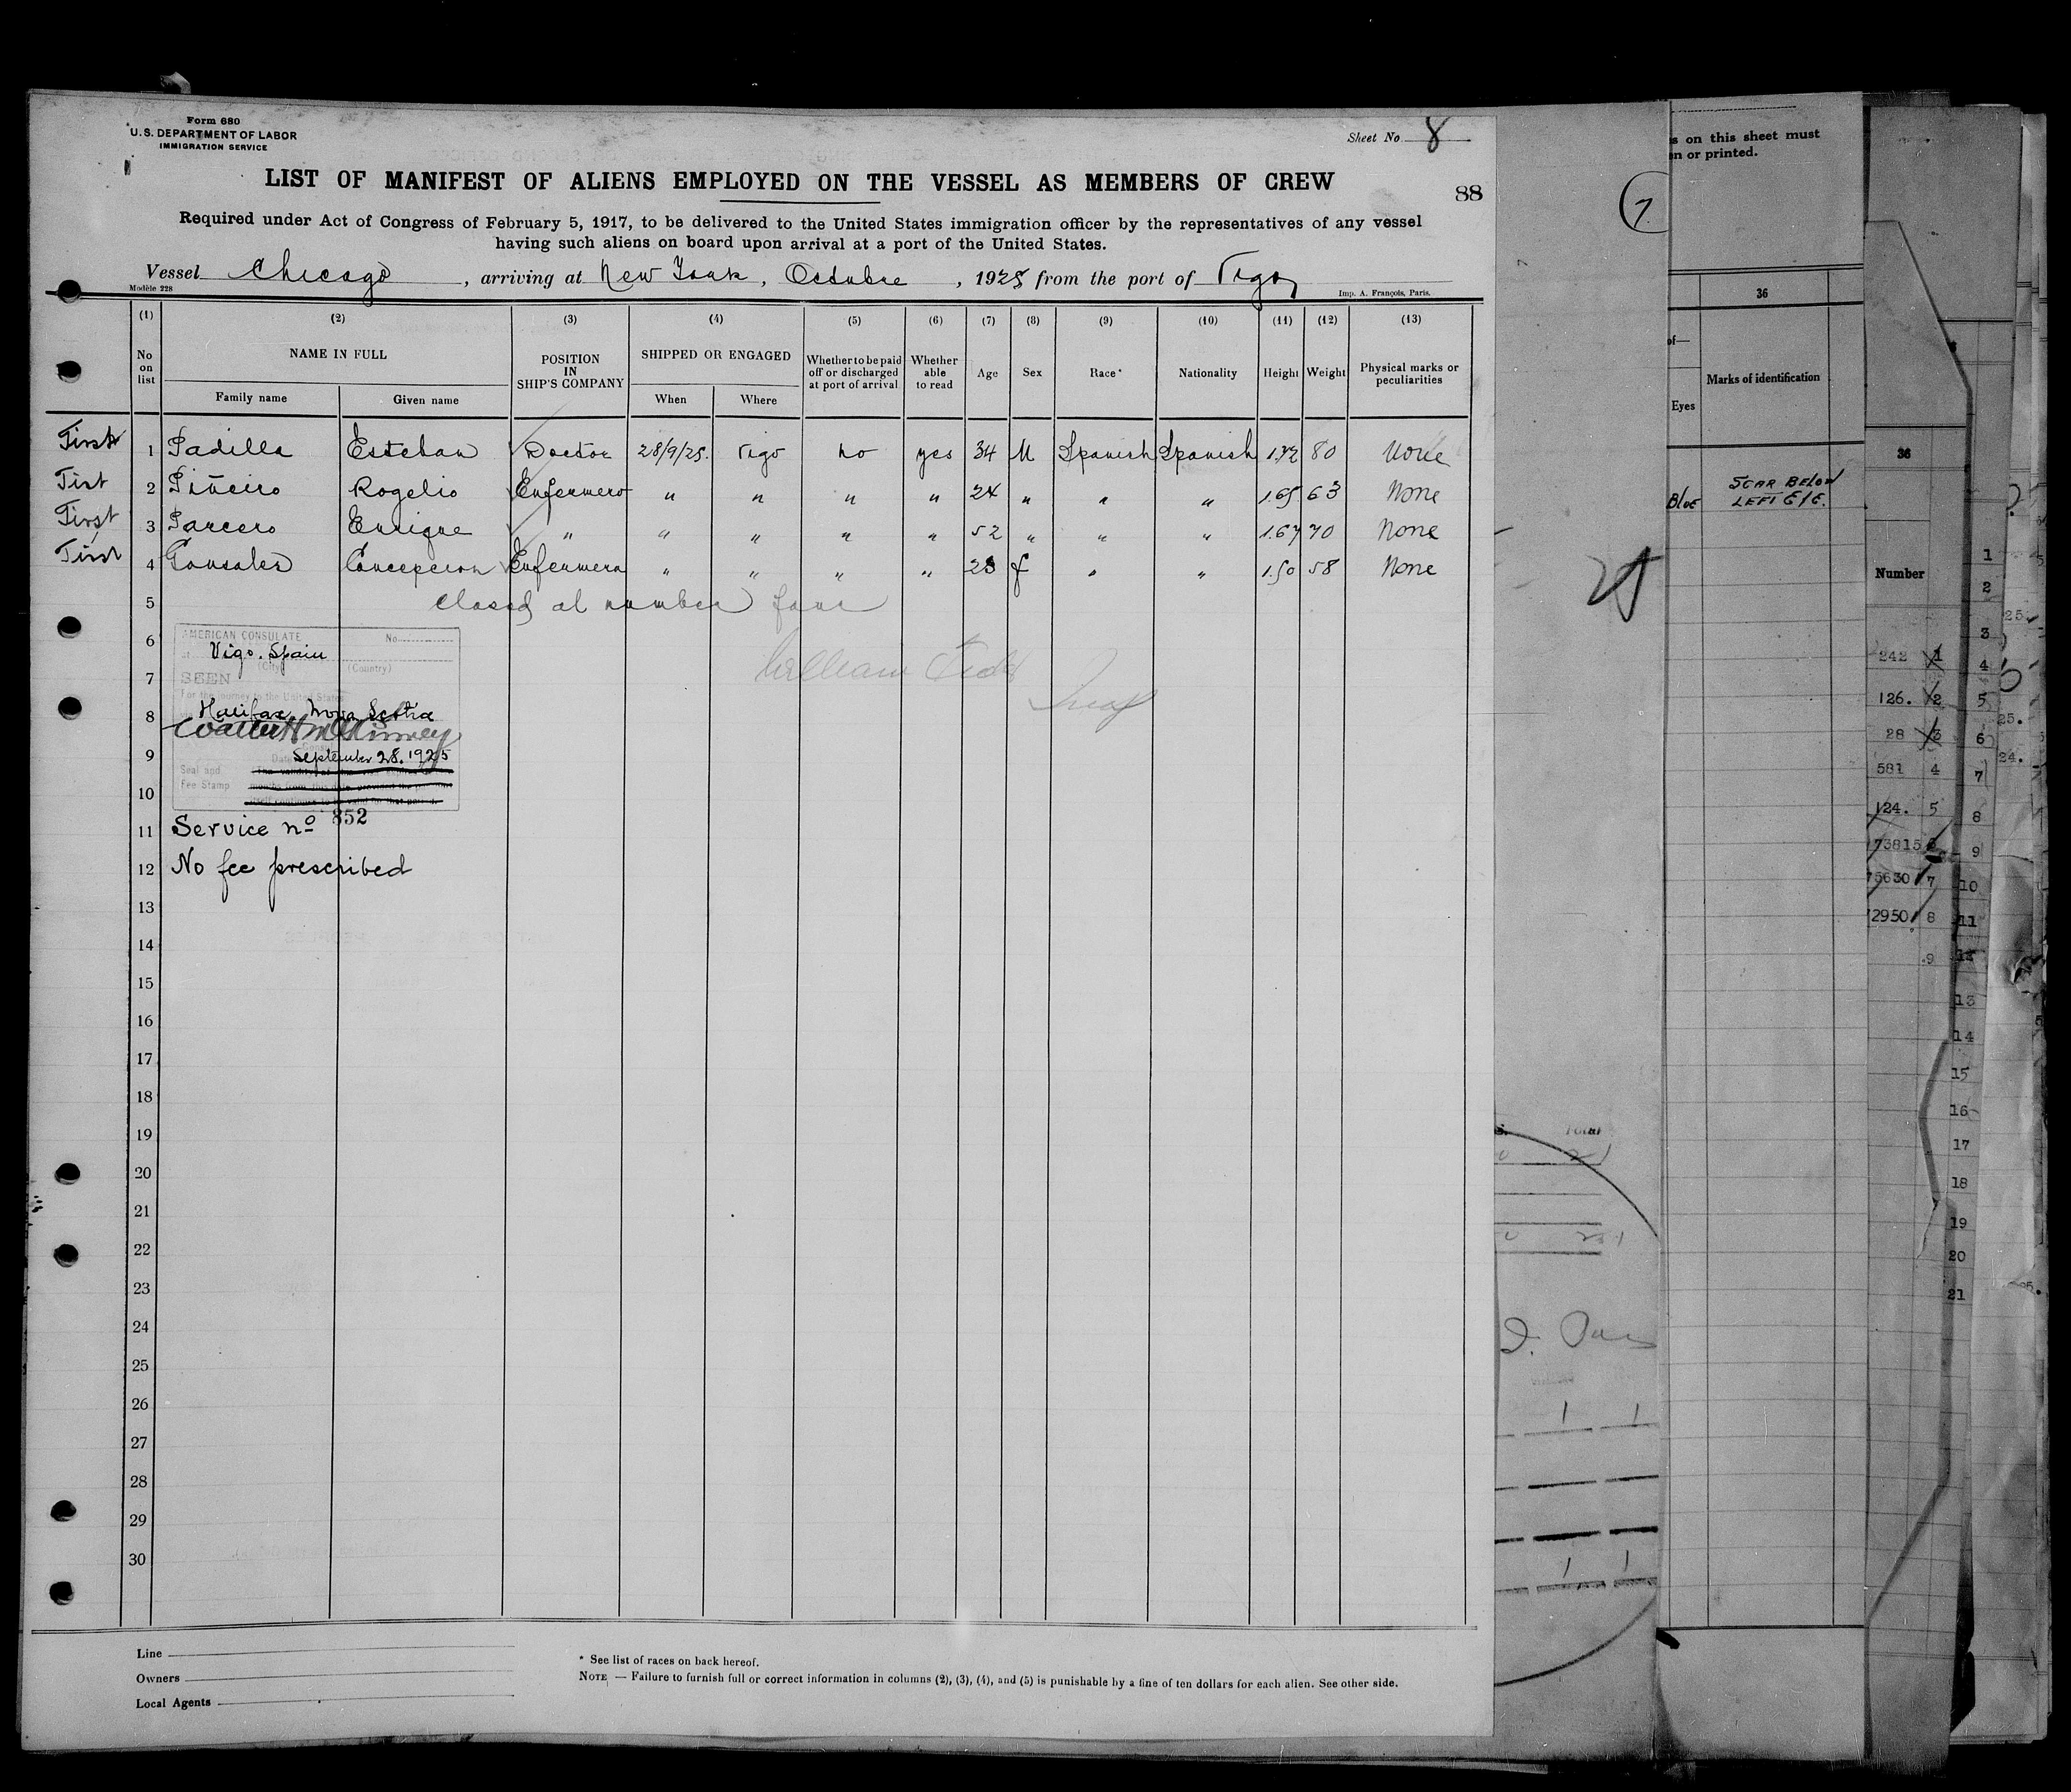 Form 680
U.S. DEPARTMENT OF LABOR
IMMIGRATION SERVICE
Sheet No 8
LIST OF MANIFEST OF ALIENS EMPLOYED ON THE VESSEL AS MEMBERS OF CREW
88
Required under Act of Congress of February 5, 1917, to be delivered to the United States immigration officer by the representatives of any vessel
having such aliens on board upon arrival at a port of the United States.
Vessel Chicago, arriving at New York, Octubre, 1925 from the port of Vigo
Modèle 228
Imp. A. François, Paris.
(1) (2) (3) (4) (5) (6) (7) (8) (9) (10) (11) (12) (13)
No on list
NAME IN FULL
Family name
Given name
POSITION IN SHIP'S COMPANY
SHIPPED OR ENGAGED
When
Where
Whether to be paid off or discharged at port of arrival
Whether able to read
Age
Sex
Race*
Nationality
Height
Weight
Physical marks or peculiarities
First 1 Padilla Esteban Doctor 28/9/25. Vigo no yes 34 M Spanish Spanish 1.72 80 None
First 2 Piñeiro Rogelio Enfermero " " " " 24 " " " 1.65 63 None
First 3 Parcero Enrique " " " " " 52 " " " 1.67 70 None
First 4 Gonsales Concepcion Enfermera " " " " 23 f " " 1.50 58 None
5 closed at number four
6
7
8
9
10
11
12
13
14
15
16
17
18
19
20
21
22
23
24
25
26
27
28
29
30
AMERICAN CONSULATE No
Vigo. Spain
(City) (Country)
SEEN
For the journey to the United States
Halifax, Nova Scotia
September 28. 1925
Seal and
Fee Stamp
Service nº 852
No fee prescribed
Line
Owners
Local Agents
* See list of races on back hereof.
NOTE — Failure to furnish full or correct information in columns (2), (3), (4), and (5) is punishable by a fine of ten dollars for each alien. See other side.
7
s on this sheet must
en or printed.
36
of—
Eyes
Marks of identification
Blue
SCAR BELOW
LEFT EYE.
36
Number
242 1
126. 2
28 3
581 4
124. 5
73815
75630 7
72950 8
9
1
2
3
4
5
6
7
8
9
10
11
12
13
14
15
16
17
18
19
20
21
Total